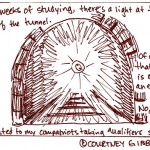 weeks of studying, there's a light at
of the tunnel.
is a
No,
ted to my compatriots taking Qualifiers
© COURTNEY GIBB